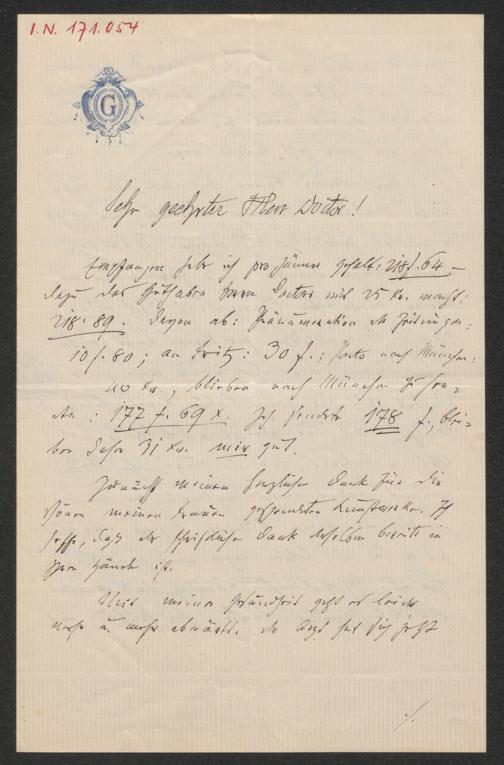 I.N. 171.054
G
Sehr geehrter Herr Doctor!
Empfangen habe ich pro Jänner Gehalt: 218 f. 64 –
dazu das Guthaben Herrn Doctors mit 25 kr. macht:
218. 89. Davon ab: Pränumeration der Zeitungen:
10 f. 80; an Fritz: 30 f.; Porto nach München:
40 kr., blieben nach München zu sen-
den: 177 f. 69 x. Ich sendete 178 f., blei-
ben daher 31 kr. mir gut.
Zunächst meinen herzlichen Dank für die
schönen meiner Frau gesendeten Kunstwerke. Ich
hoffe, daß der schriftliche Dank derselben bereits in
Ihren Händen ist.
Mit meiner Gesundheit geht es leider
mehr u. mehr abwärts. Der Arzt hat sich jetzt
./.